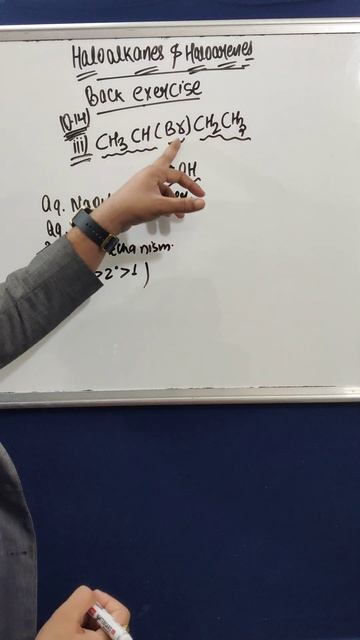 Haloalkanes & Haloarenes
Back exercise
Q.14)
iii) CH3 CH(Br)CH2CH3
OH
aq.
aq.
mechanism.
>2°>1)